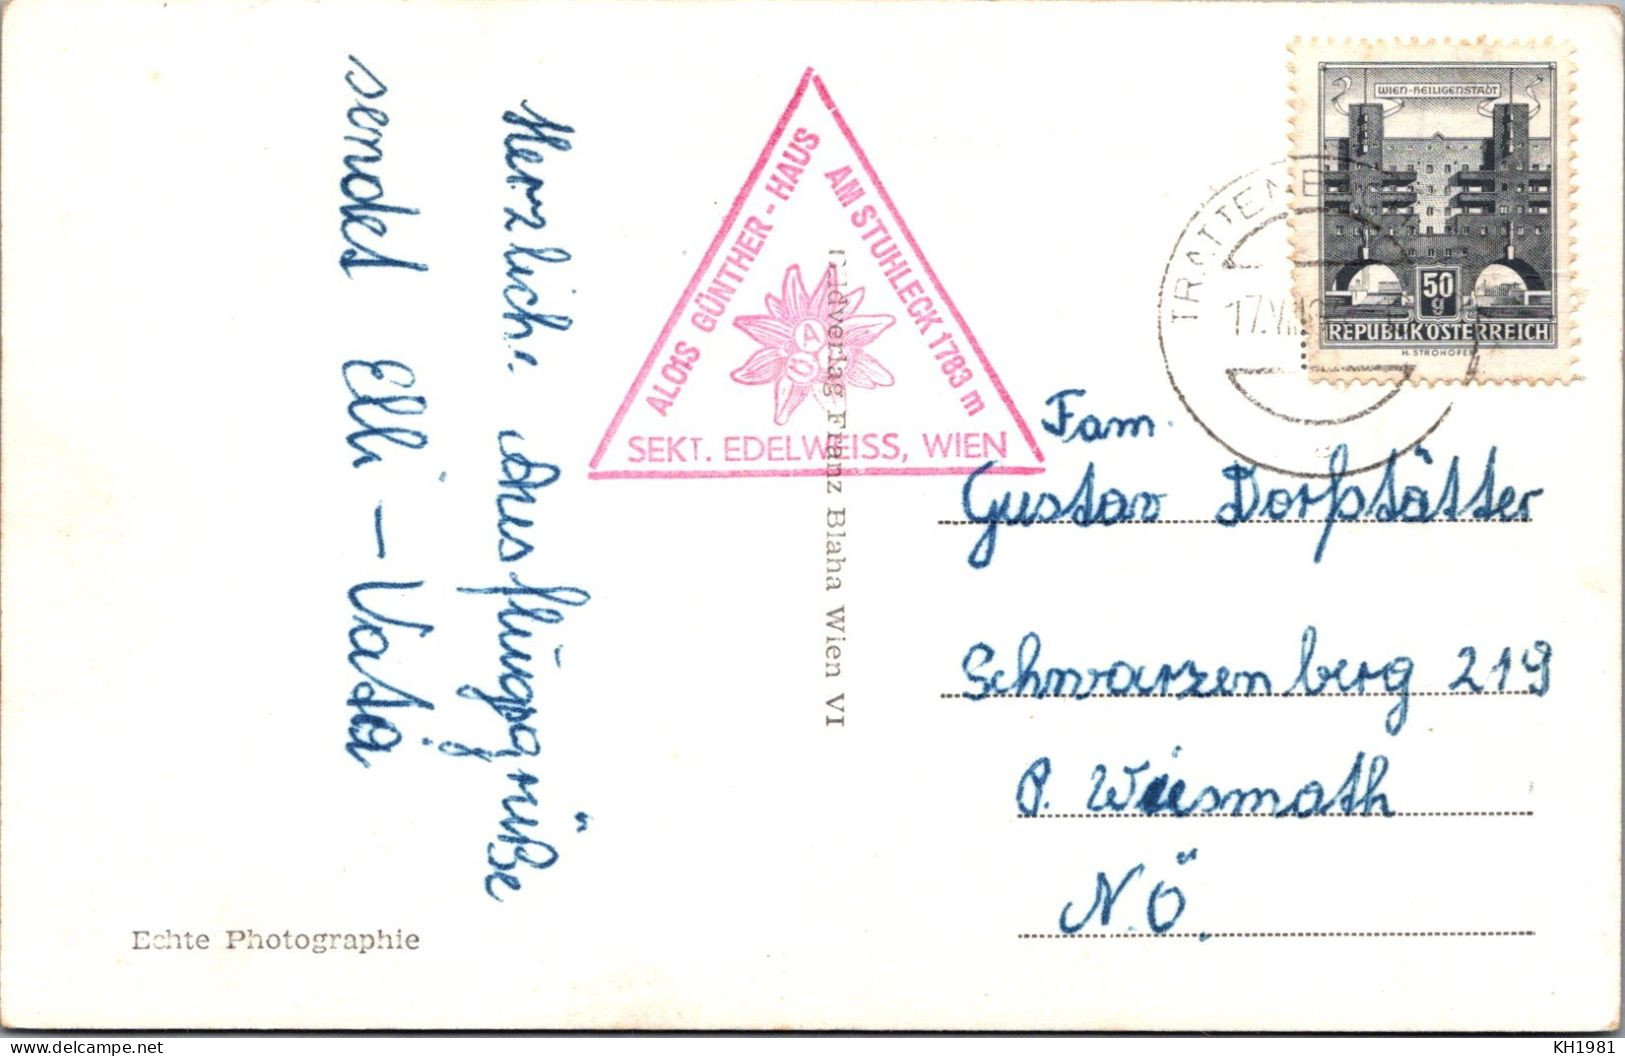 Herzliche Ausflugsgrüße
sendet Elli - Vata
ALOIS GÜNTHER-HAUS
AM STUHLECK 1783 m
ÖAV
SEKT. EDELWEISS, WIEN
Bildverlag Franz Blaha Wien VI
WIEN-HEILIGENSTADT
50
g
REPUBLIK ÖSTERREICH
H. STROHOFER
Fam.
Gustav Dorfstätter
Schwarzenberg 219
P. Wiesmath
N.Ö.
Echte Photographie
delcampe.net
KH1981